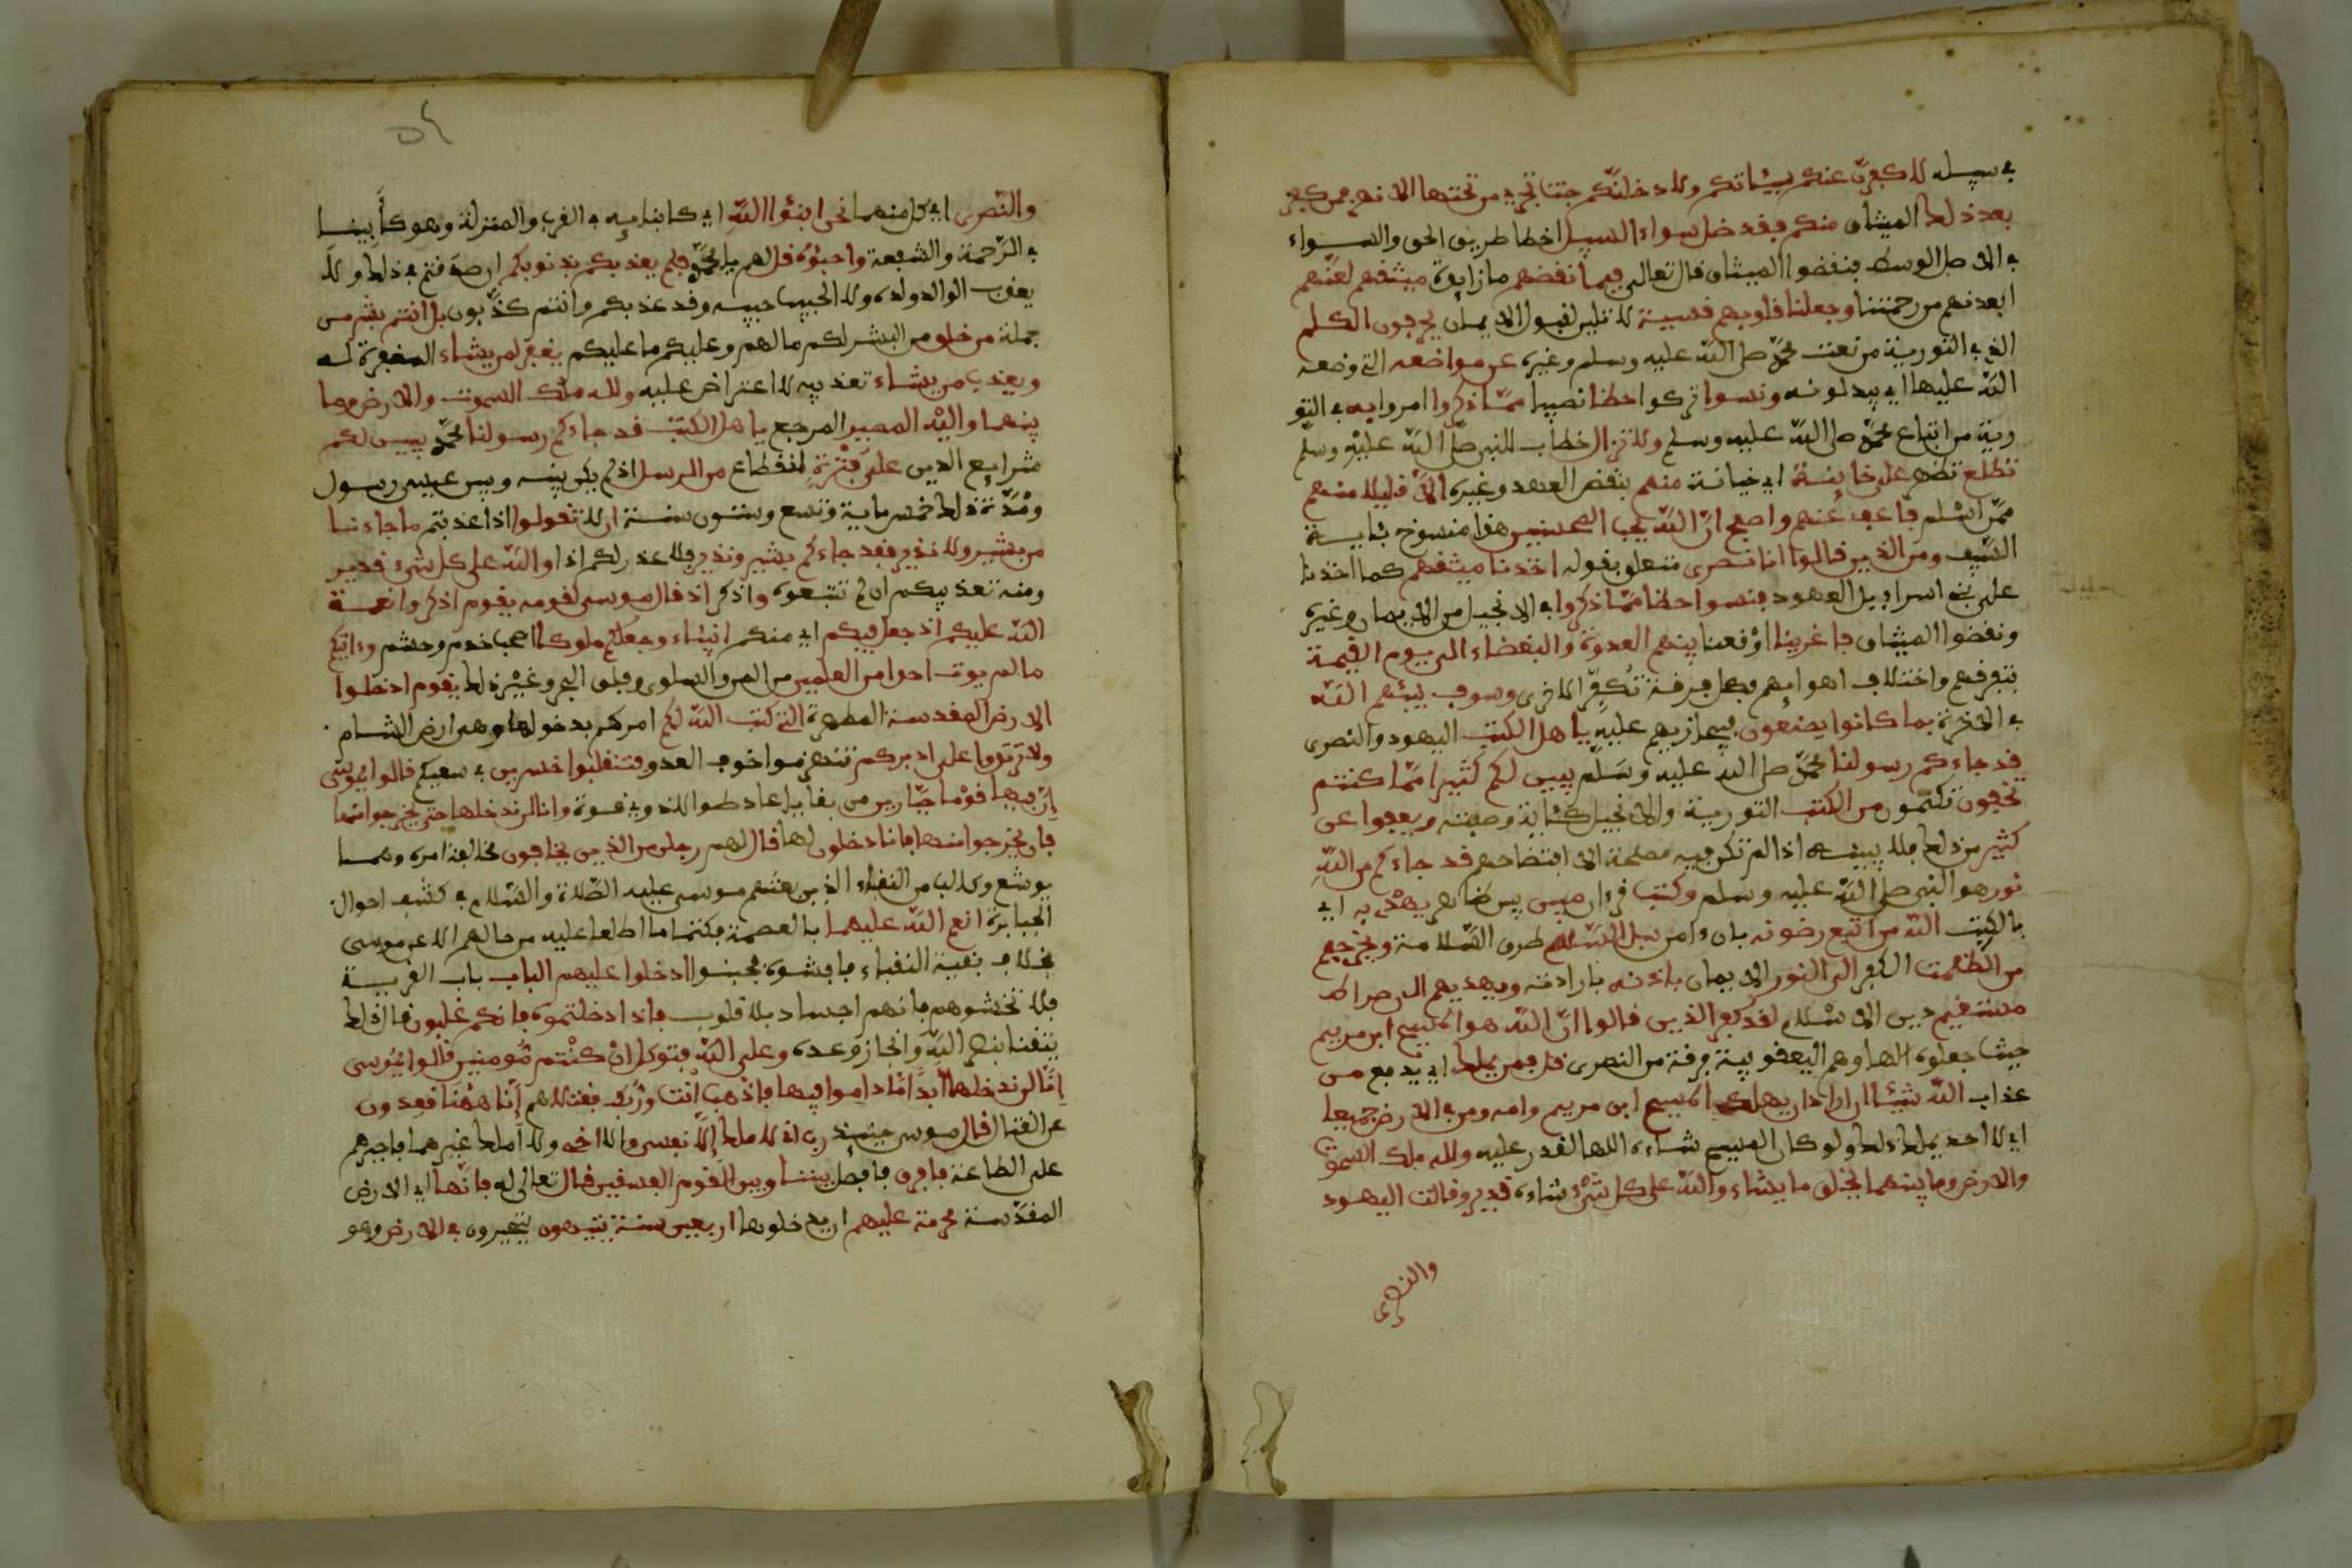 في سبيله لاكفرن عنكم سيئاتكم ولادخلنكم جنت تجري من تحتها الانهر فمن كفر
بعد ذلك الميثاق منكم فقد ضل سواء السبيل اخطا طريق الحق والسواء
في الاصل الوسط فنقضوا الميثاق قال تعالى فبما نقضهم ما زايدة ميثقهم لعنهم
ابعدنهم من رحمتنا وجعلنا قلوبهم قسية لا تلين لقبول الايمان يحرفون الكلم
الذي في التورية من نعت محمد صلى الله عليه وسلم وغيره عن مواضعه التي وضعه
الله عليها اي يبدلونه ونسوا تركوا حظا نصيبا مما ذكروا امروا به في التو
رية من اتباع محمد صلى الله عليه وسلم ولا تزال خطاب للنبي صلى الله عليه وسلم
تطلع تظهر على خاينة اي خيانة منهم بنقض العهد وغيره الا قليلا منهم
ممن اسلم فاعف عنهم واصفح ان الله يحب المحسنين هذا منسوخ بئاية
السيف ومن الذين قالوا انا نصرى متعلق بقوله اخذنا ميثقهم كما اخذنا
على بني اسراءيل اليهود فنسوا حظا مما ذكروا به في الانجيل من الايمان وغيره
ونقضوا الميثاق فاغرينا اوقعنا بينهم العدوة والبغضاء الى يوم القيمة
بتفرقهم واختلاف اهوايهم فكل فرقة تكفر الاخرى وسوف ينبئهم الله
في الاخرة بما كانوا يصنعون فيجازيهم عليه ياهل الكتب اليهود والنصرى
قد جاءكم رسولنا محمد صلى الله عليه وسلم يبين لكم كثيرا مما كنتم
تخفون تكتمون من الكتب التورية والانجيل كئاية وصفته ويعفوا عن
كثير من ذلك فلا يبينه اذا لم تكن فيه مصلحة الا افتضاحكم قد جاءكم من الله
نور هو النبي صلى الله عليه وسلم وكتب قرءان مبين بين ظاهر يهدي به اي
بالكتب الله من اتبع رضونه بان ءامن سبل السلم طرق السلامة ويخرجهم
من الظلمت الكفر الى النور الايمان باذنه بارادته ويهديهم الى صراط
مستقيم دين الاسلام لقد كفر الذين قالوا ان الله هو المسيح ابن مريم
حيث جعلوه الها وهم اليعقوبية فرقة من النصرى قل فمن يملك اي يدفع من
عذاب الله شيئا ان اراد ان يهلك المسيح ابن مريم وامه ومن في الارض جميعا
اي لا احد يملك ذلك ولو كان المسيح الها لقدر عليه ولله ملك السموت
والارض وما بينهما يخلق ما يشاء والله على كل شيء شاءه قدير وقالت اليهود
والنصرى
والنصرى اي كل منهما نحن ابنؤا الله اي كابنايه في القرب والمنزلة وهو كابينا
في الرحمة والشفقة واحبؤه قل لهم يا محمد فلم يعذبكم بذنوبكم ان صدقتم في ذلك ولا
يعذب الوالد ولده ولا الحبيب حبيبه وقد عذبكم وانتم كذبون بل انتم بشر من
جملة من خلق من البشر لكم ما لهم وعليكم ما عليهم يغفر لمن يشاء المغفرة له
ويعذب من يشاء تعذيبه لا اعتراض عليه ولله ملك السموت والارض وما
بينهما واليه المصير المرجع ياهل الكتب قد جاءكم رسولنا محمد يبين لكم
شرايع الدين على فترة انقطاع من الرسل اذ لم يكن بينه وبين عيسى رسول
ومدة ذلك خمس ماية وتسع وستون سنة ان لا تقولوا اذا عذبتم ما جاءنا
من بشير ولا نذير فقد جاءكم بشير ونذير فلا عذر لكم اذا والله على كل شيء قدير
ومنه تعذيبكم ان لم تتبعوه واذكر اذ قال موسى لقومه يقوم اذكروا نعمة
الله عليكم اذ جعل فيكم اي منكم انبياء وجعلكم ملوكا اصحاب خدم وحشم وءاتيكم
ما لم يوت احدا من العلمين من المن والسلوى وفلق البحر وغير ذلك يقوم ادخلوا
الارض المقدسة المطهرة التي كتب الله لكم امركم بدخولها وهي ارض الشام
ولا ترتدوا على ادبركم تنهزموا خوف العدو فتنقلبوا خسرين في سعيكم قالوا يموسى
ان فيها قوما جبارين من بقايا عاد طوالا ذوي قوة وانا لن ندخلها حتى يخرجوا منها
فان يخرجوا منها فانا دخلون لها قال لهم رجلن من الذين يخافون مخالفة امره وهما
يوشع وكالب من النقباء الذين بعثهم موسى عليه الصلاة والسلام في كشف احوال
الجبابرة انعم الله عليهما بالعصمة فكتما ما اطلعا عليه من حالهم الا عن موسى
بخلاف بقية النقباء فافشوه فجبنوا ادخلوا عليهم الباب باب القرية
فلا تخشوهم فانهم اجساد بلا قلوب فاذا دخلتموه فانكم غلبون قالا ذلك
تيقنا بنصر الله وانجاز وعده وعلى الله فتوكلوا ان كنتم مومنين قالوا يموسى
انا لن ندخلها ابدا ما داموا فيها فاذهب انت وربك فقتلا هم انا ههنا قعدون
عن القتال قال موسى حينيذ رب اني لا املك الا نفسي والا اخي ولا املك غيرهما فاجبرهم
على الطاعة فافرق فافصل بيننا وبين القوم الفسقين قال تعالى له فانها اي الارض
المقدسة محرمة عليهم ان يدخلوها اربعين سنة يتيهون يتحيرون في الارض وهو